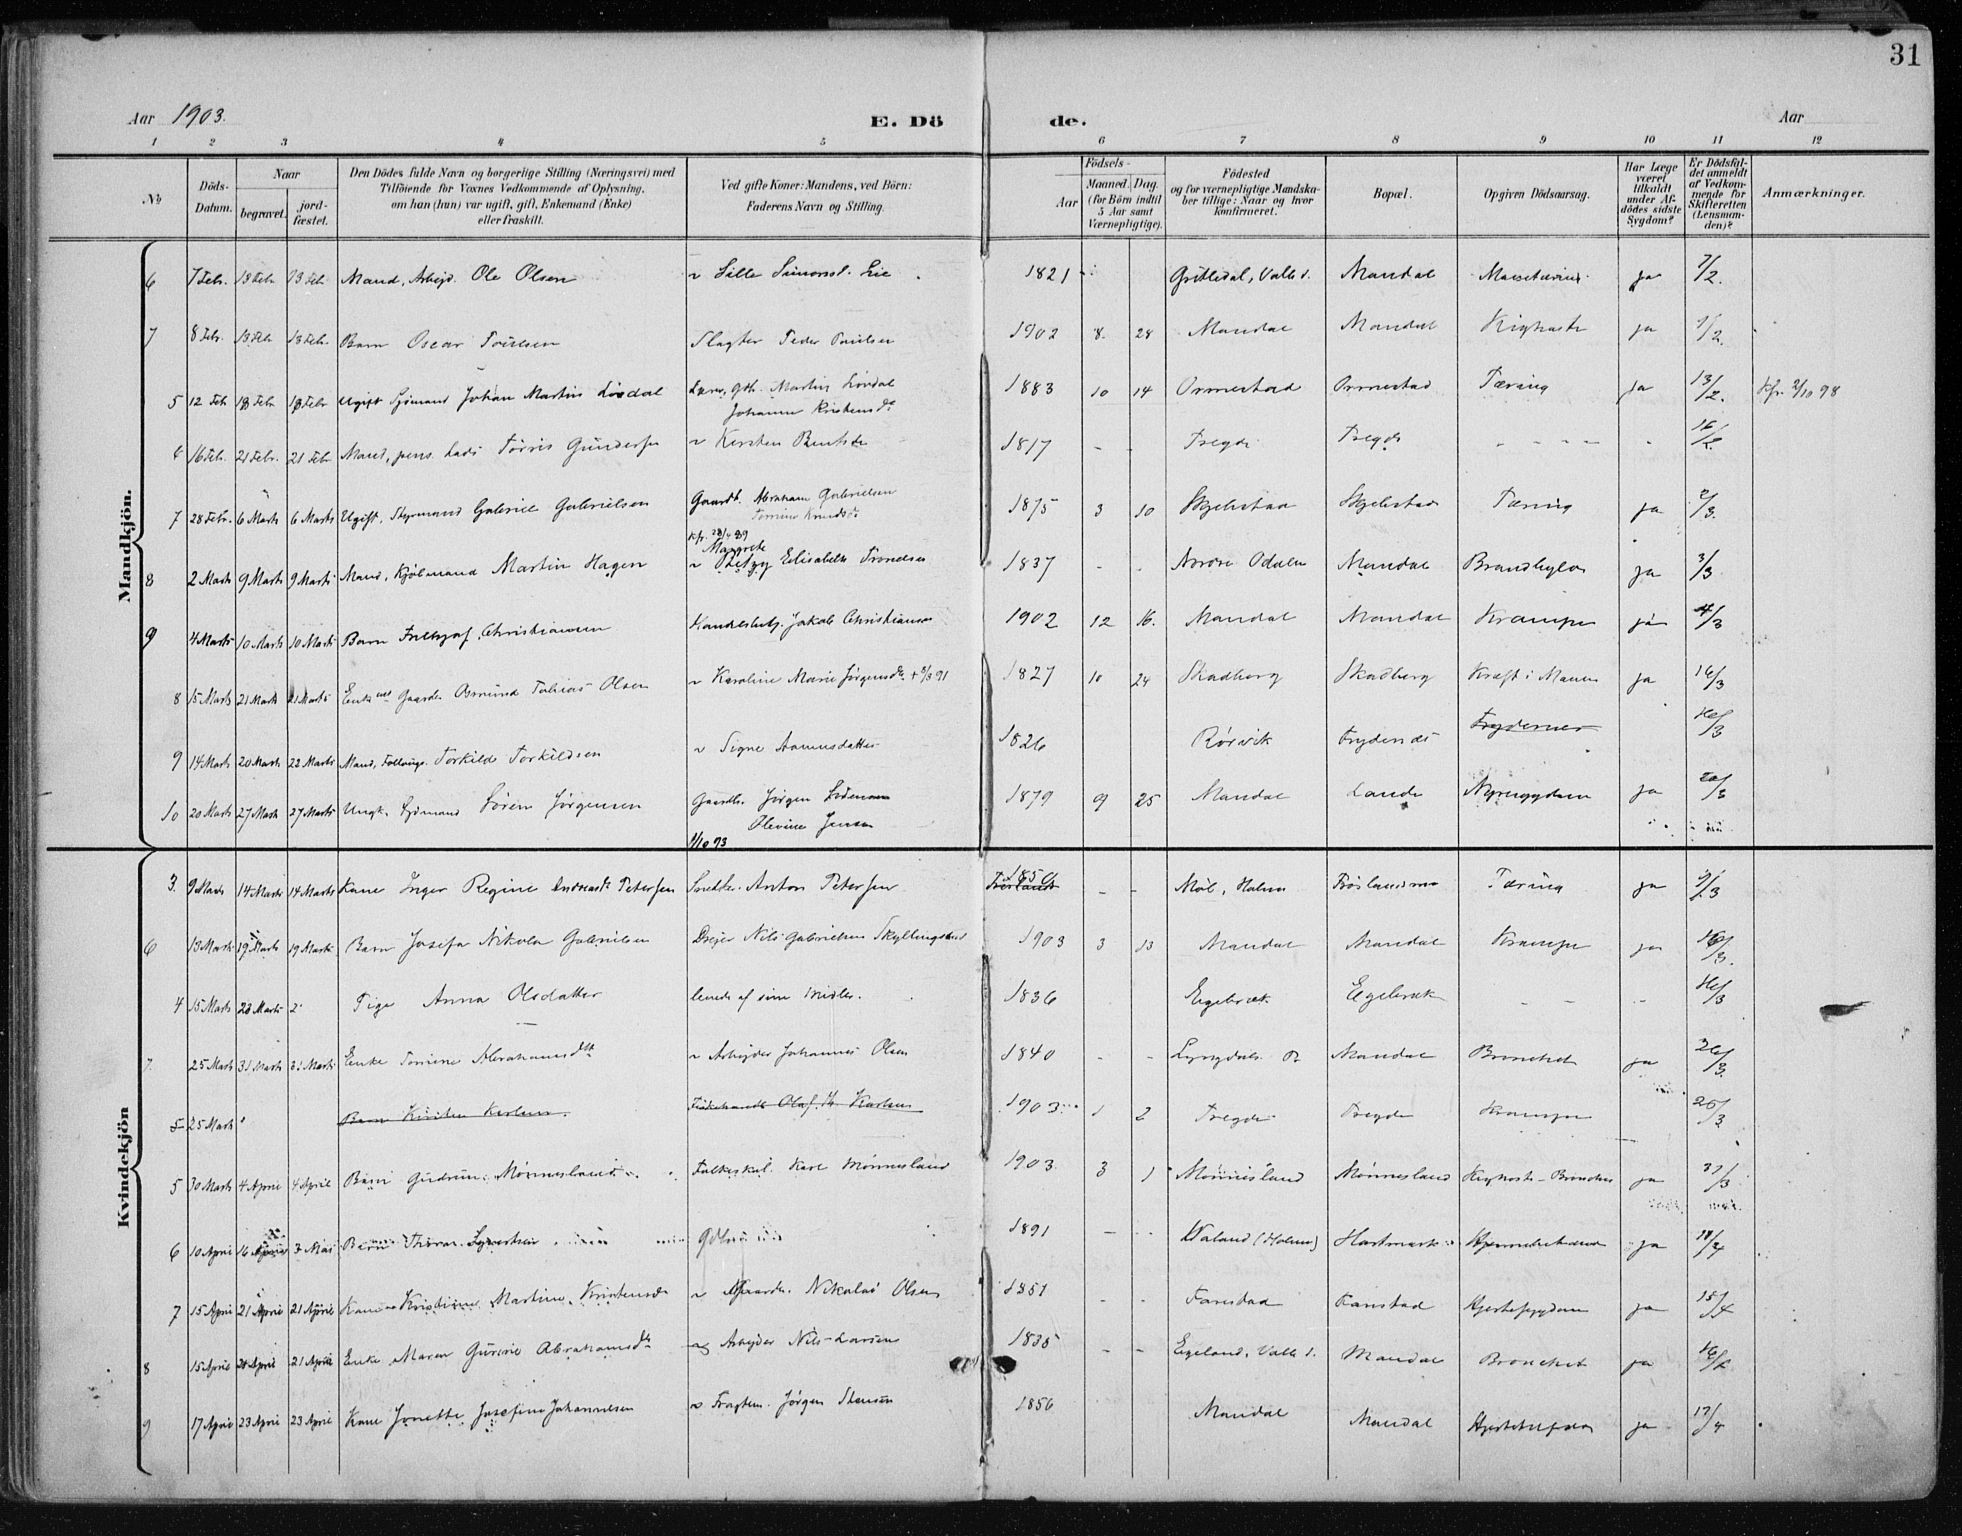 31
Aar 1903.
E. Dö
de.
Aar
1 2 3 4 5 6 7 8 9 10 11 12
№
Döds-Datum.
Naar
begravet.
jord-fæstet.
Den Dödes fulde Navn og borgerlige Stilling (Næringsvei) med
Tilföiende for Voxnes Vedkommende af Oplysning,
om han (hun) var ugift, gift, Enkemand (Enke)
eller fraskilt.
Ved gifte Koner: Mandens, ved Börn:
Faderens Navn og Stilling.
Födsels-
Aar
Maaned. Dag.
(for Börn indtil
5 Aar samt
Værnepligtige).
Födested
og for værnepligtige Mandska-
ber tillige: Naar og hvor
konfirmeret.
Bopæl.
Opgiven Dödsaarsag.
Har Læge
været
tilkaldt
under Af-
dödes sidste
Sygdom?
Er Dödsfal-
det anmeldt
af Vedkom-
mende for
Skifteretten
(Lensman-
den)?
Anmærkninger.
Mandkjön.
6 7 Febr. 13 Febr 13 Febr Mand, Arbejd. Ole Olsen ~ Sille Simonsd. Lie 1821 - Valle s. Mandal ja 7/2.
7 8 Febr. 13 Febr 13 Febr. Barn Oscar Poulsen Slagter Peder Poulsen 1902 8. 28 Mandal Mandal Kighoste ja 9/2.
5 12 Feb 18 Febr 18 Febr Ugift Sjømand Johan Martin Løvdal Martin Løvdal 1883 10 14 Ormestad Ormestad Tæring ja 13/2. Kfr. 2/10 98
Johanne Kristensdr
4 16 Febr. 21 Febr. 21 Febr Mand, pens. Lods Tørris Gundersen ~ Kirsten Bentsdr 1817 - - Tregde Tregde - - - - - 16/2.
7 28 Febr. 6 Marts 6 Marts Ugift, Styrmand Gabriel Gabrielsen Gaardb. Abraham Gabrielsen 1875 3 10 Skjebstad Skjebstad Tæring ja 2/3.
Tomine Knudsdr
8 2 Marts 9 Marts 9 Marts Mand, Kjøbmand Martin Hagen Margrete Elisabeth Trondsen 1837 - - Nordre Odalen Mandal ja 3/3
9 4 Marts 10 Marts 10 Marts Barn Fridtjof Christiansen Handelsbetj. Jakob Christiansen 1902 12 16. Mandal Mandal Krampe ja 4/3
8 15 Marts 21 Marts 21 Marts Enkem Gaardbr Osmund Tobias Olsen ~ Karoline Marie Jørgensdr. + 91 1827 10 24 Skadberg Skadberg Kræft i Maven ja 16/3
9 14 Marts 20 Marts 22 Marts Mand, Torkild Torkildsen ~ Signe Aanensdatter 1826 Rørvik Frydenes 16/3
10 20 Marts 27 Marts 27 Marts Ungk. Sjømand Søren Jørgensen Gaardb. Jørgen 1879 9 25 Mandal Lande Nyresygdom ja 20/3
Olevine Jensen
1/10 93
Kvindekjön
3. 9 Marts 14 Marts 14 Marts Kone Inger Regine Andreasdr Petersen Snedker Anton Petersen 1850 - - Møl, Holme Frøslandsmo Tæring ja 9/3
6 13 Marts 19 Marts 19 Marts Barn Josefa Nikola Gabrielsen Drejer Nils Gabrielsen 1903 3 13 Mandal Mandal Krampe ja 16/3.
4 15 Marts 23 Marts Pige Anna Olsdatter levede af sine Midler. 1836 Egebæk Egebæk - - - 16/3
7 25 Marts 31 Marts 31 Marts Enke Tomine Abrahamsdtr ~ Arbejder Johannes Olsen 1840 - - Lyngdal Mandal Bronchit ja 26/3.
5 25 Marts Barn Kirsten Karlsen Olaf Karlsen 1903 1 2 Tregde Tregde Krampe 26/3
5 30 Marts 4 April 4 April Barn Gudrun Mønnesland Folkeskol. Karl Mønnesland 1903. 3 1 Mønnesland Mønnesland Kighoste - Bronchit ja 31/3
6 10 April 16 April 3 Mai Barn 1891 - - (Holme) Hartmark ja 11/4
7 15 April 21 April 21 April Kone Kristine Martine Kristensdr ~ Gaardb. Nikolai Olsen 1851 - - Fanstad Fanstad Hjertesygdom ja 15/4
8 15 April 21 April 21 April Enke Maren Gurine Abrahamsdr Arbejder Nils Larsen 1835 - - Egeland, Valle s. Mandal Bronchit ja 16/4
9 17 April 23 April 23 April Kone Jonette Josefine Johannesen ~ Jørgen Stensen 1856 Mandal Mandal ja 17/4